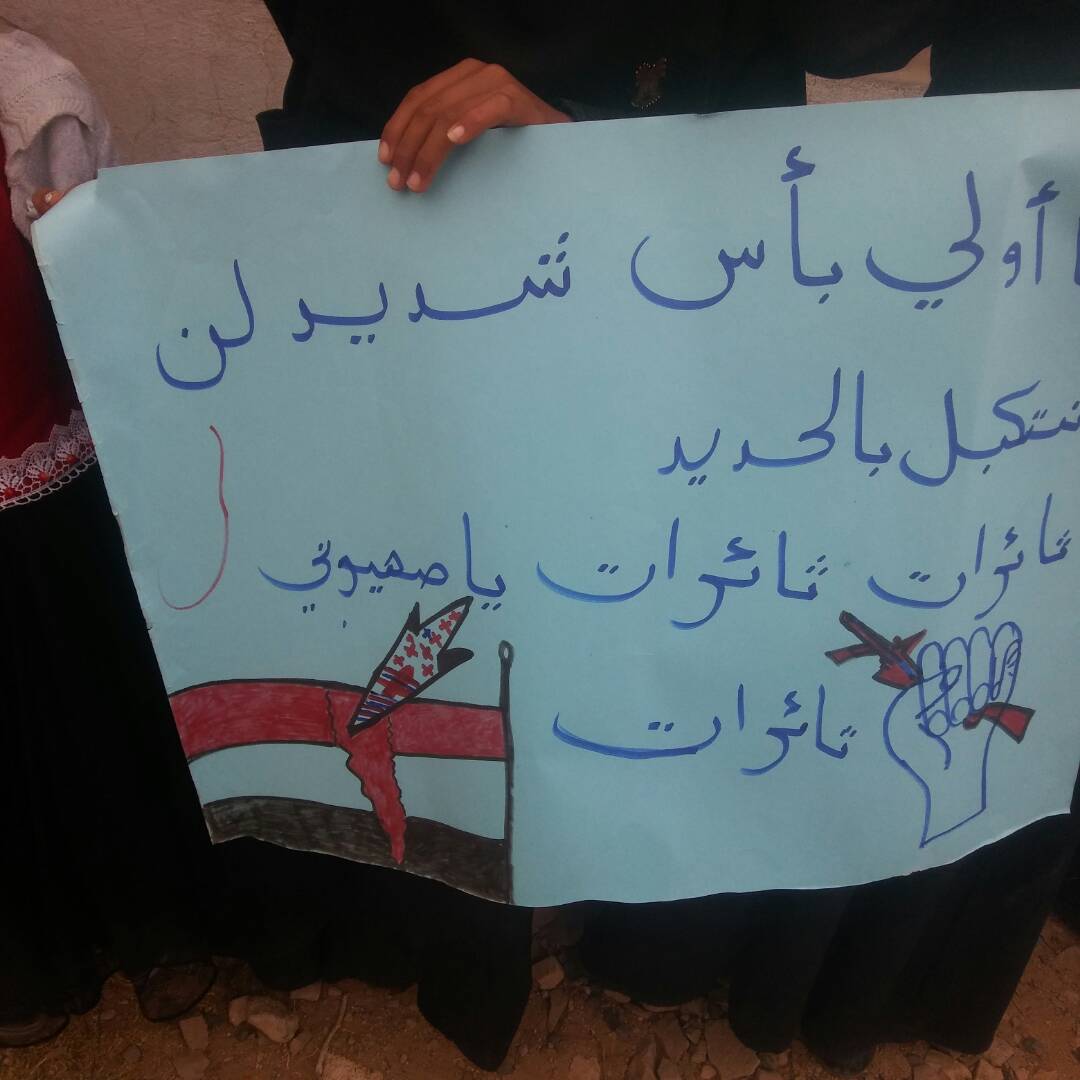 أولي بأس شديد لن
نتكبل بالحديد
ثائرات ثائرات يا صهيوني
ثائرات